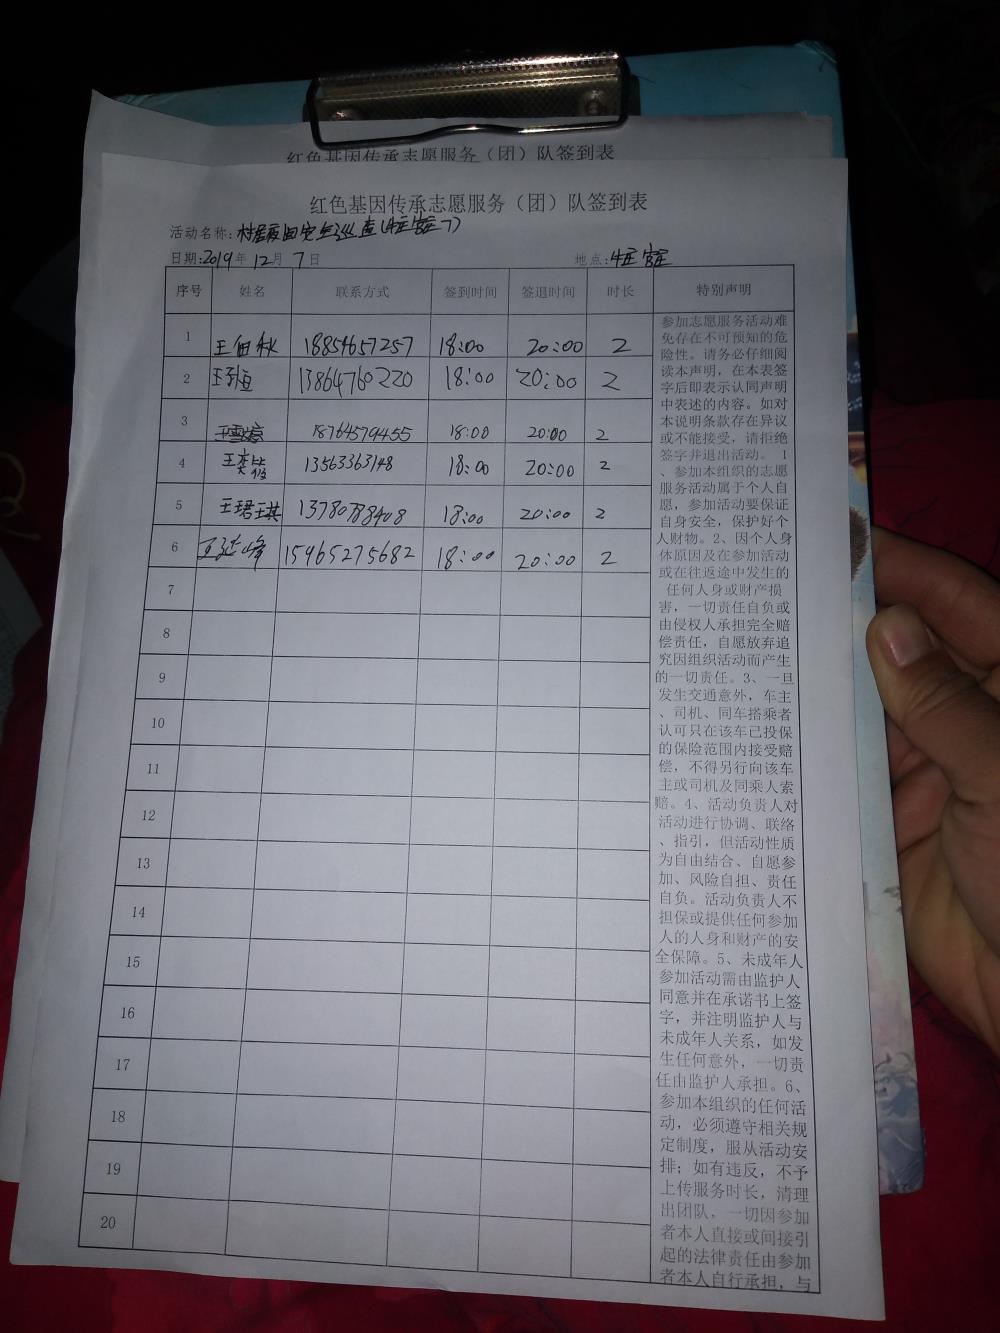 红色基因传承志愿服务（团）队签到表
红色基因传承志愿服务（团）队签到表
活动名称：村居夜间安全巡查
日期：2019年 12月 7日 地点：
序号 姓名 联系方式 签到时间 签退时间 时长 特别声明
1 王田秋 18854657257 18:00 20:00 2
2 13864760220 18:00 20:00 2
3 18764579455 18:00 20:00 2
4 王奕 13563363148 18:00 20:00 2
5 王珺琪 13780788408 18:00 20:00 2
6 王延峰 15965275682 18:00 20:00 2
7
8
9
10
11
12
13
14
15
16
17
18
19
20
参加志愿服务活动难
免存在不可预知的危
险性。请务必仔细阅
读本声明，在本表签
字后即表示认同声明
中表述的内容。如对
本说明条款存在异议
或不能接受，请拒绝
签字并退出活动。 1
、参加本组织的志愿
服务活动属于个人自
愿，参加活动要保证
自身安全，保护好个
人财物。2、因个人身
体原因及在参加活动
或在往返途中发生的
任何人身或财产损
害，一切责任自负或
由侵权人承担完全赔
偿责任，自愿放弃追
究因组织活动而产生
的一切责任。3、一旦
发生交通意外，车主
、司机、同车搭乘者
认可只在该车已投保
的保险范围内接受赔
偿，不得另行向该车
主或司机及同乘人索
赔。4、活动负责人对
活动进行协调、联络
、指引，但活动性质
为自由结合、自愿参
加、风险自担、责任
自负。活动负责人不
担保或提供任何参加
人的人身和财产的安
全保障。5、未成年人
参加活动需由监护人
同意并在承诺书上签
字，并注明监护人与
未成年人关系，如发
生任何意外，一切责
任由监护人承担。6、
参加本组织的任何活
动，必须遵守相关规
定制度，服从活动安
排；如有违反，不予
上传服务时长，清理
出团队，一切因参加
者本人直接或间接引
起的法律责任由参加
者本人自行承担，与